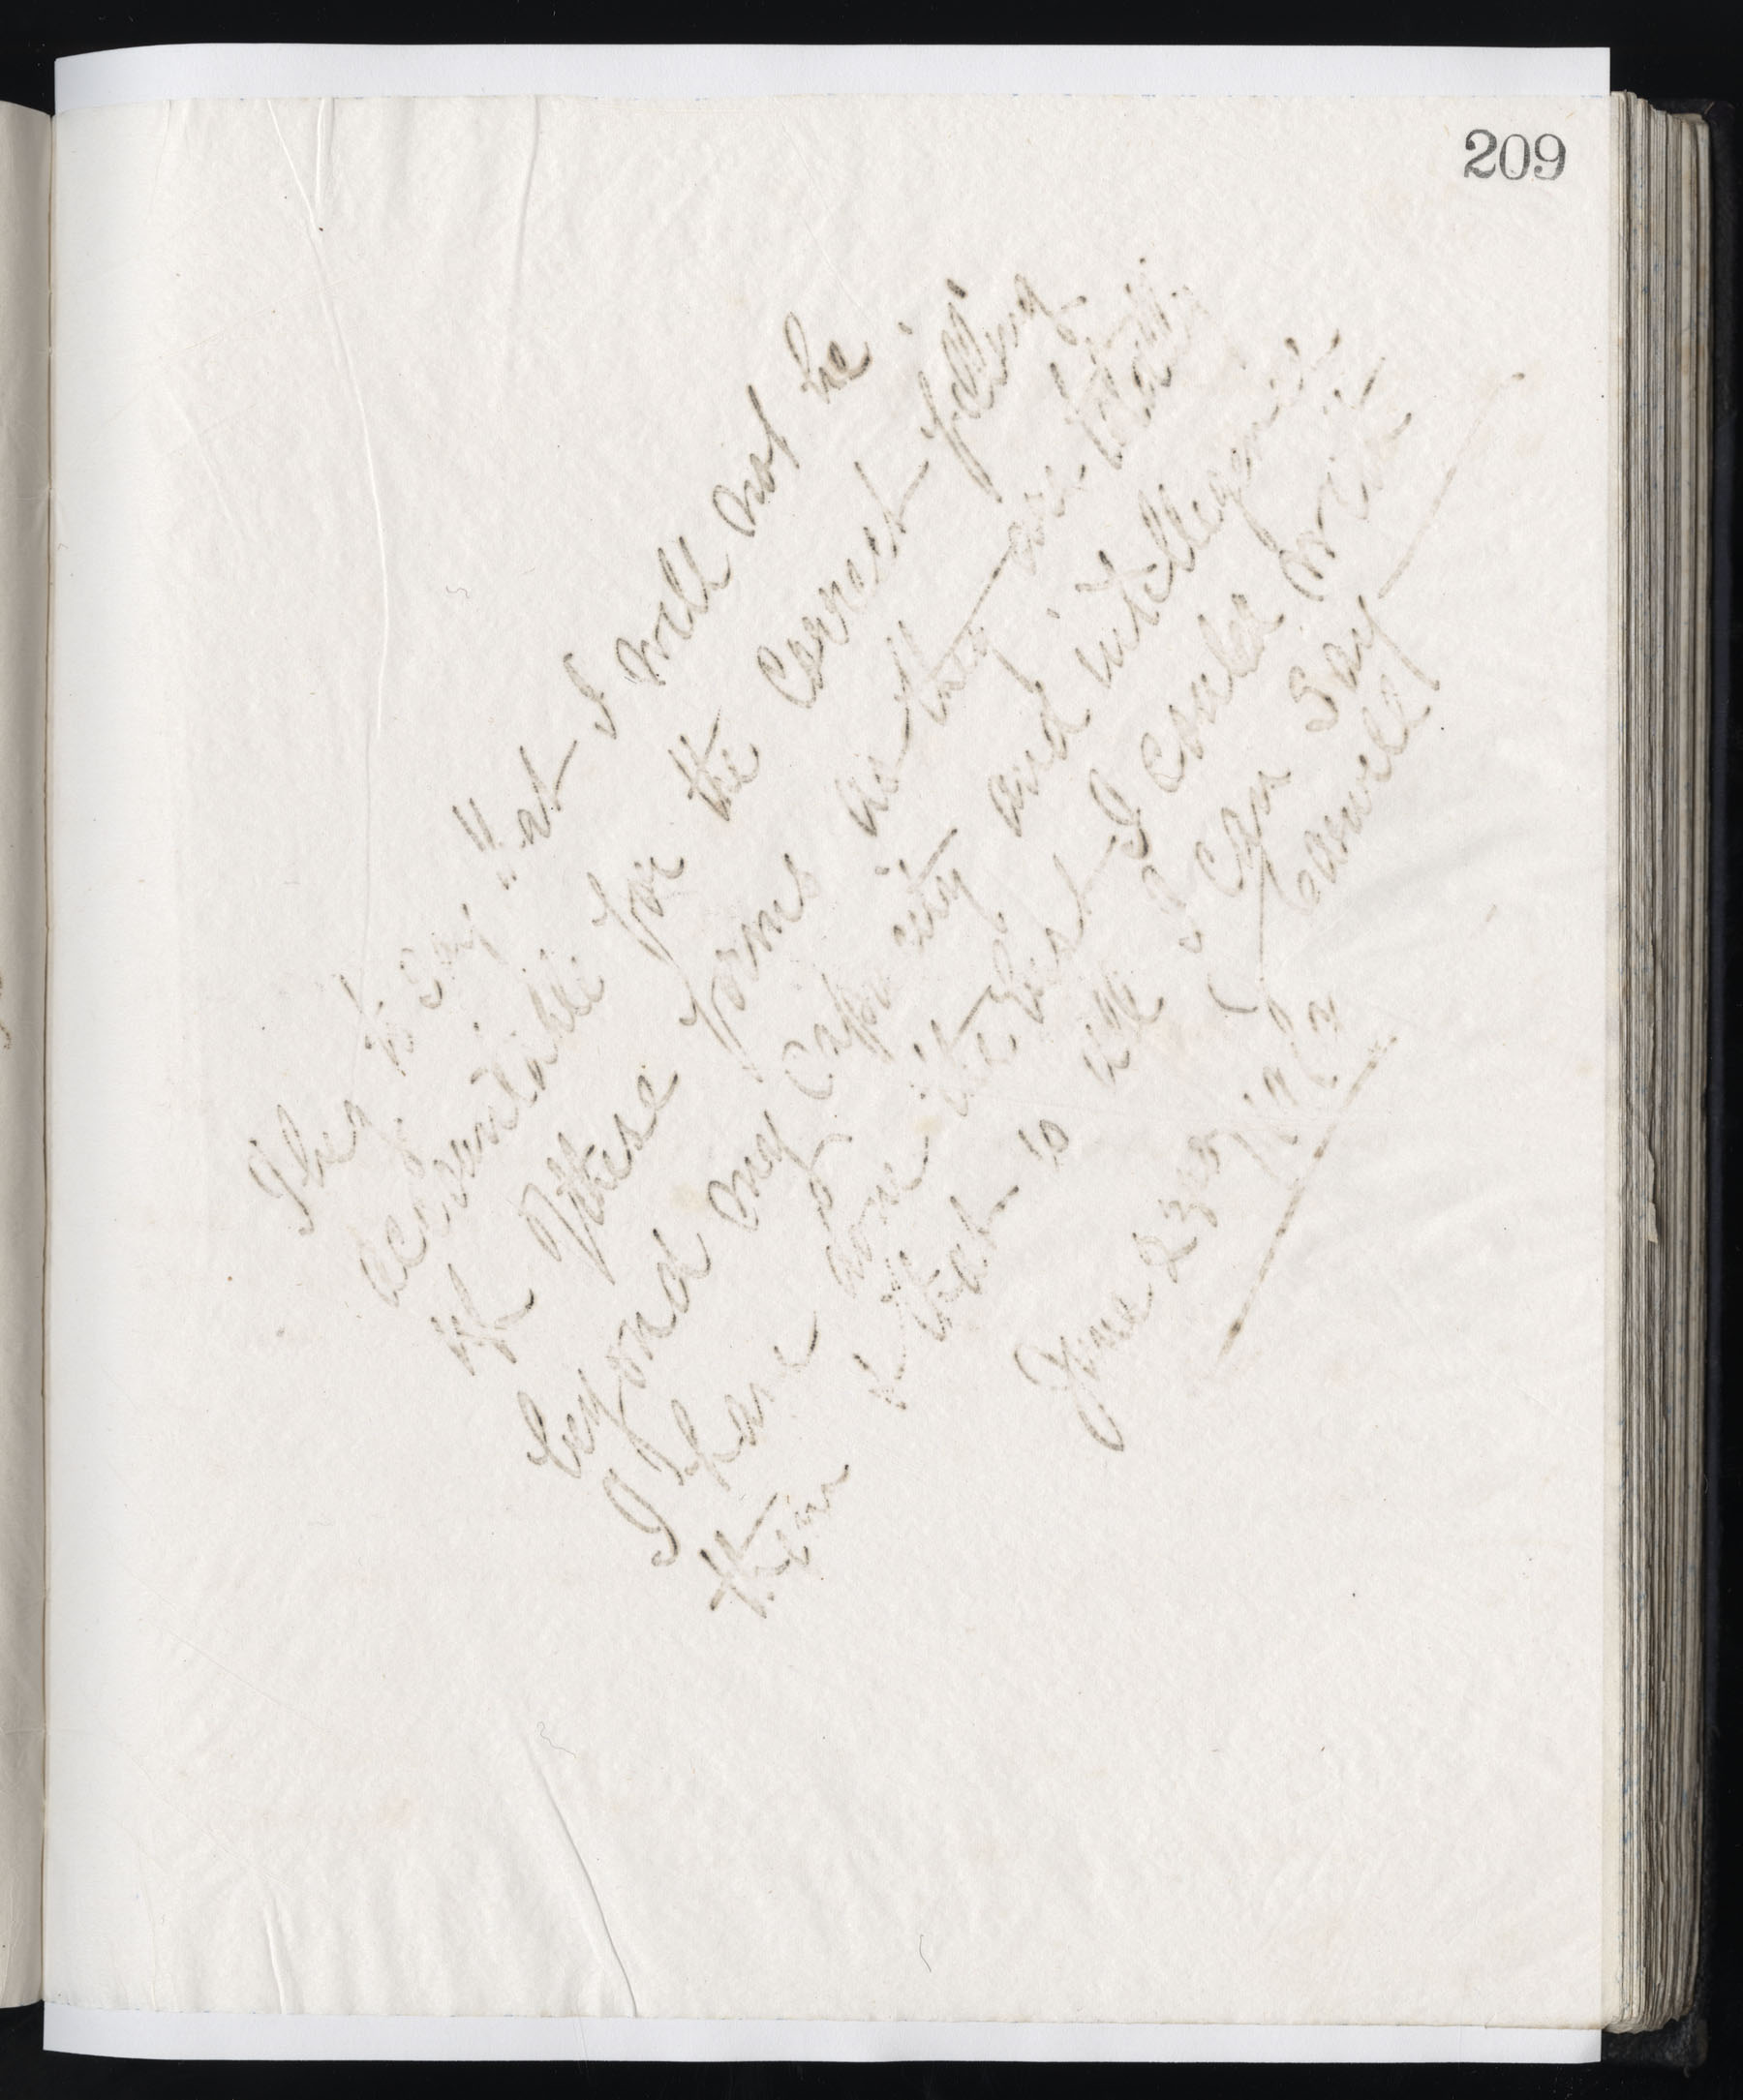 209
I beg to say that I will not be
accountable for the correct filling
of these forms as they are totally
beyond my capacity and intelligence.
I have done the best I could with
them & that is all I can say
June 23rd